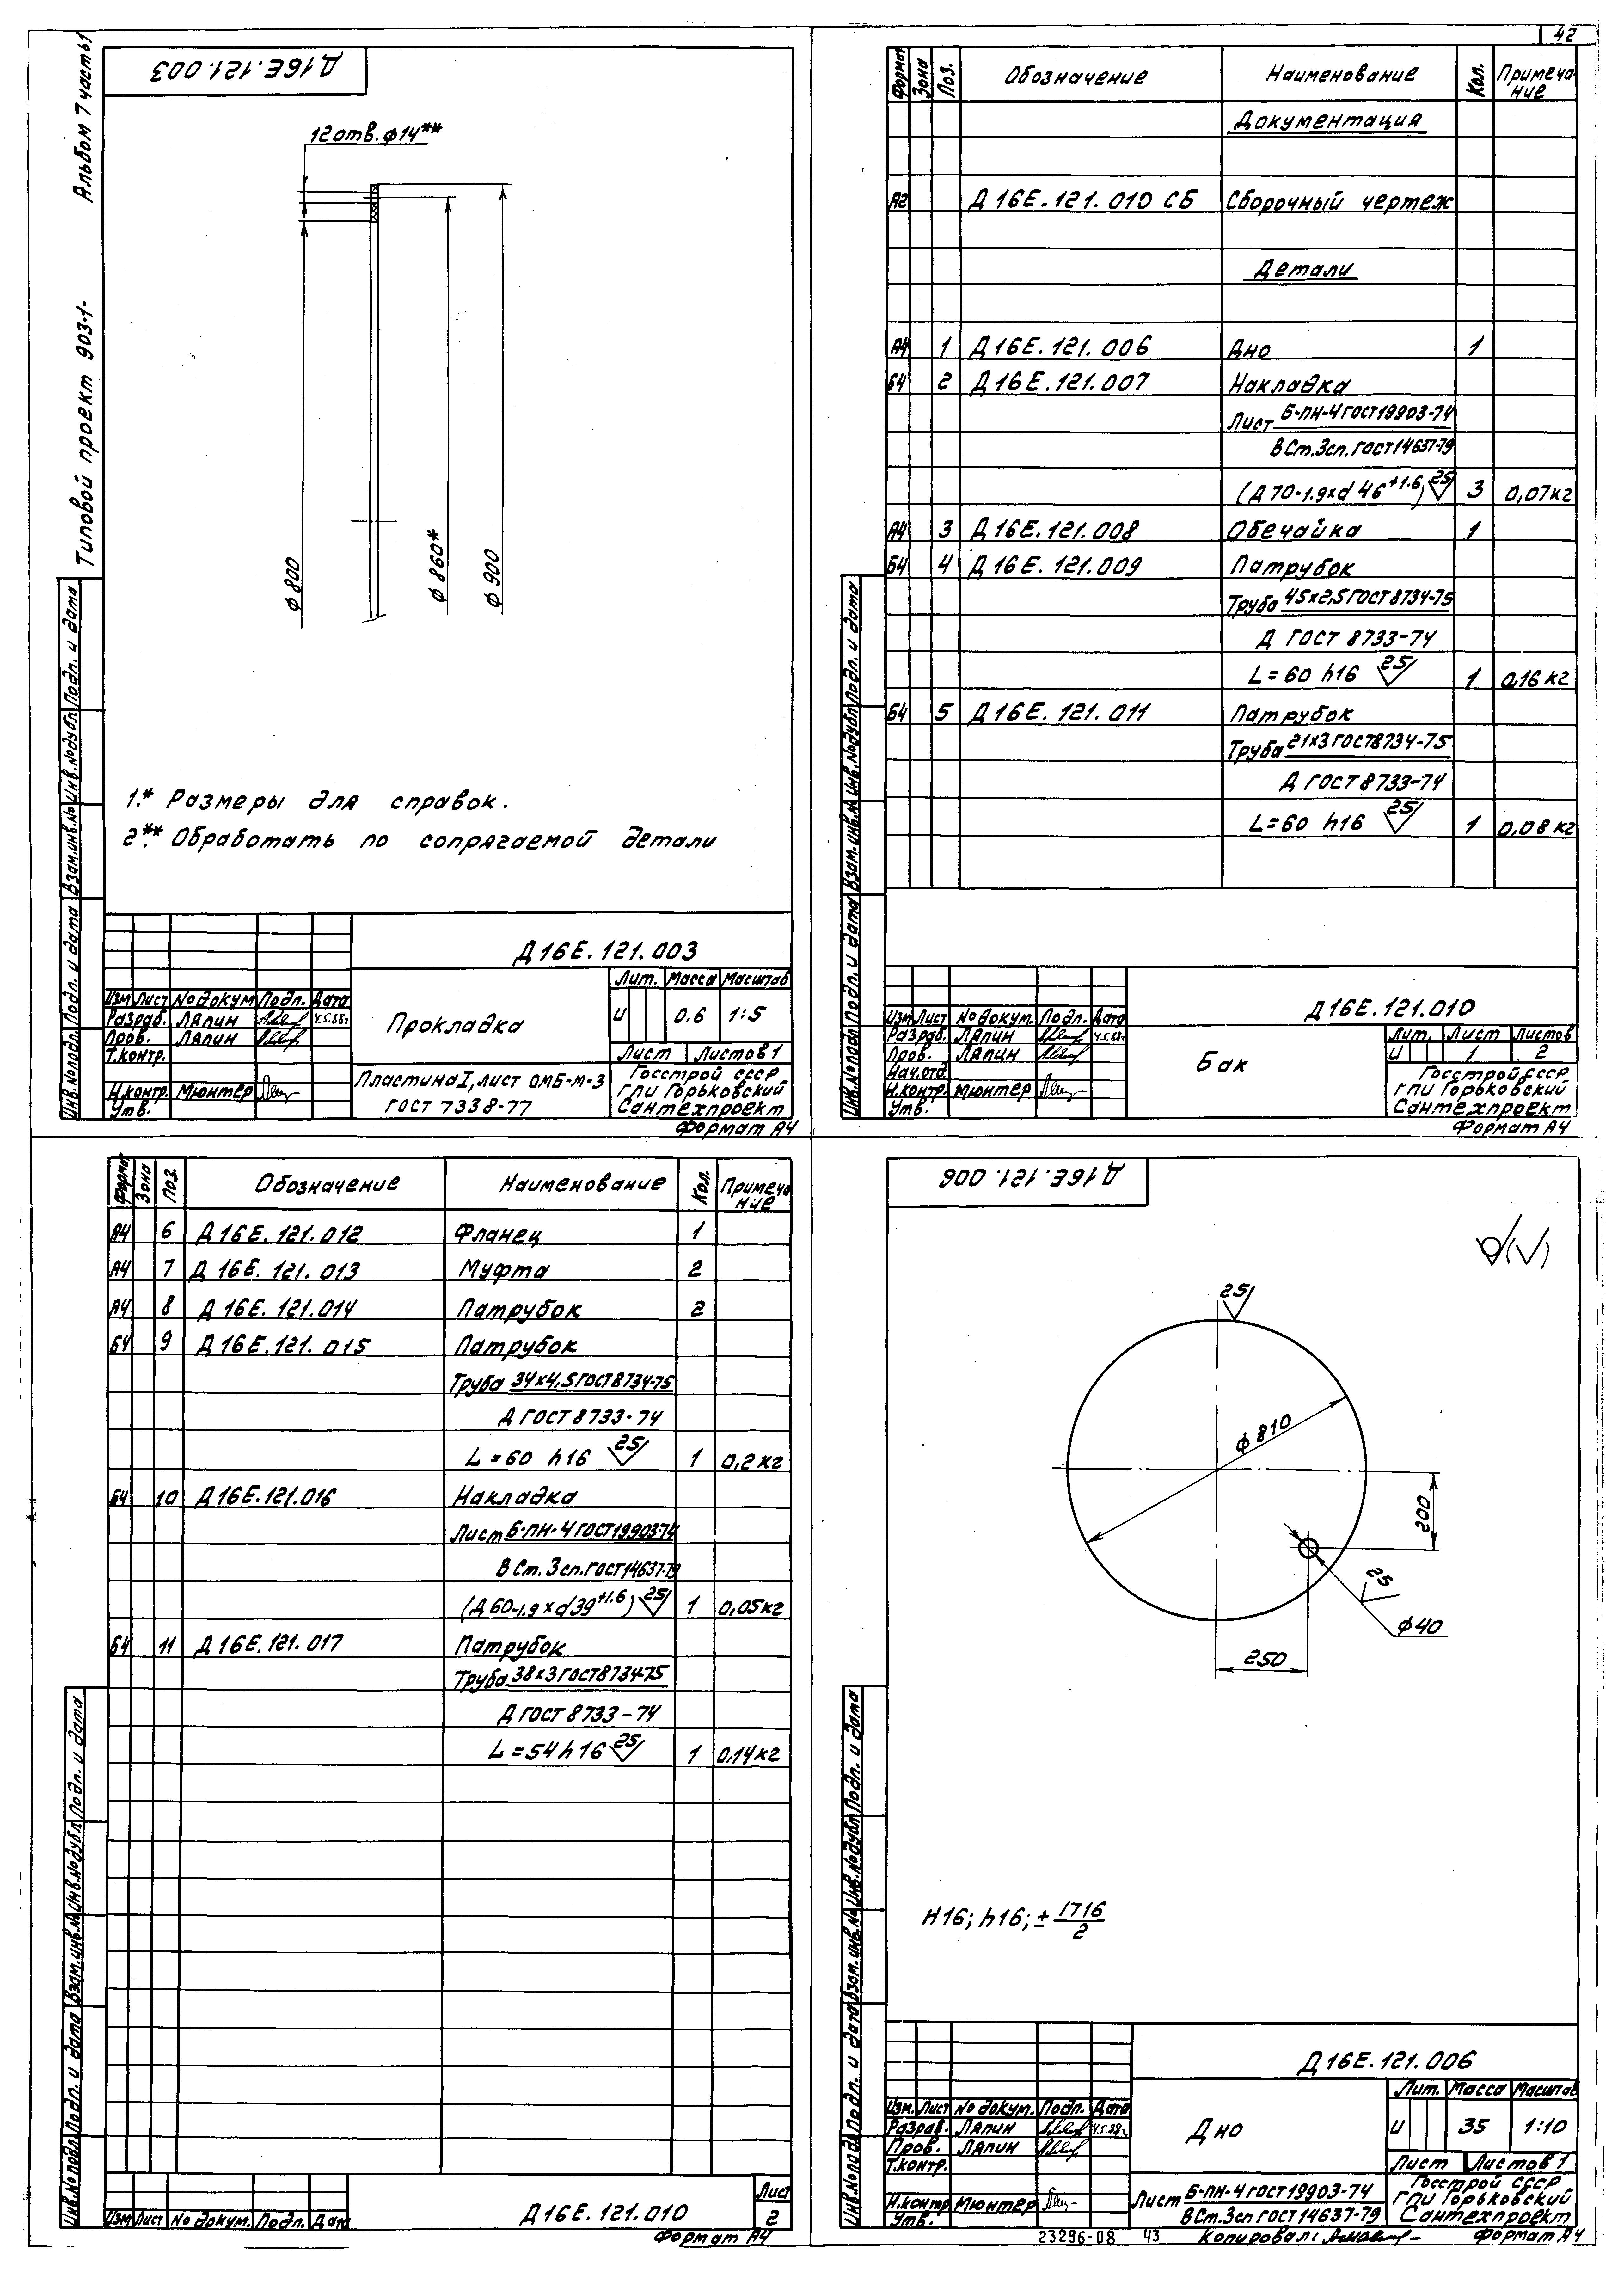 42
Альбом 7 часть 1
Типовой проект 903-1-
Д16Е.121.003
12 отв. ϕ14**
ϕ800
ϕ860*
ϕ900
1.* Размеры для справок.
2.** Обработать по сопрягаемой детали
Инв.№подл. Подп. и дата Взам.инв.№ Инв.№дубл. Подп. и дата
Д16Е.121.003
Лит. Масса Масштаб
Изм Лист №докум Подп. Дата
Разраб. Ляпин 4.5.88г
Прокладка
И 0,6 1:5
Пров. Ляпин
Т.контр.
Лист Листов 1
Пластина I, лист ОМБ-М-3
ГОСТ 7338-77
Госстрой СССР
ГПИ Горьковский
Сантехпроект
Н.контр. Мюнтер
Утв.
Формат А4
Формат Зона Поз. Обозначение Наименование Кол. Примеча-
ние
Документация
А2 Д16Е.121.010 СБ Сборочный чертеж
Детали
А4 1 Д16Е.121.006 Дно 1
Б4 2 Д16Е.121.007 Накладка
Лист Б-ПН-4 ГОСТ19903-74
ВСт.3сп.ГОСТ14637-79
(Д70-1.9хd 46+1.6) 25 3 0,07кг
А4 3 Д16Е.121.008 Обечайка 1
Б4 4 Д16Е.121.009 Патрубок
Труба 45х2,5ГОСТ8734-75
Д ГОСТ 8733-74
L=60 h16 25 1 0,16кг
Б4 5 Д16Е.121.011 Патрубок
Труба 21х3ГОСТ8734-75
Д ГОСТ8733-74
L=60 h16 25 1 0,08кг
Инв.№подл. Подп. и дата Взам.инв.№ Инв.№дубл Подп. и дата
Д16Е.121.010
Изм Лист №докум. Подп. Дата
Разраб. Ляпин 4.5.88г
Пров. Ляпин
Нач.отд.
Н.контр. Мюнтер
Утв.
Бак
Лит. Лист Листов
И 1 2
Госстрой СССР
ГПИ Горьковский
Сантехпроект
Формат А4
Формат Зона Поз. Обозначение Наименование Кол. Примеча
ние
А4 6 Д16Е.121.012 Фланец 1
А4 7 Д16Е.121.013 Муфта 2
А4 8 Д16Е.121.014 Патрубок 2
Б4 9 Д16Е.121.015 Патрубок
Труба 34х4,5ГОСТ8734-75
Д ГОСТ8733-74
L=60 h16 25 1 0,2кг
Б4 10 Д16Е.121.016 Накладка
Лист Б-ПН-4 ГОСТ19903-74
ВСт.3сп.ГОСТ14637-79
(Д60-1.9хd39+1.6) 25 1 0,05кг
Б4 11 Д16Е.121.017 Патрубок
Труба 38х3ГОСТ8734-75
Д ГОСТ8733-74
L=54h16 25 1 0,14кг
Инв.№подл. Подп. и дата Взам.инв.№ Инв.№дубл Подп. и дата
Изм Лист №докум. Подп. Дата
Д16Е.121.010
Лист
2
Формат А4
Д16Е.121.006
25
ϕ810
200
25
ϕ40
250
H16; h16; ± IT16/2
Инв.№подл. Подп. и дата Взам.инв.№ Инв.№дубл Подп. и дата
Д16Е.121.006
Лит. Масса Масштаб
Изм. Лист №докум. Подп. Дата
Разраб. Ляпин 4.5.88г
Дно
И 35 1:10
Пров. Ляпин
Т.контр.
Лист Листов 1
Лист Б-ПН-4 ГОСТ19903-74
ВСт.3сп ГОСТ14637-79
Госстрой СССР
ГПИ Горьковский
Сантехпроект
Н.контр Мюнтер
Утв.
23296-08 43 Копировал: Формат А4